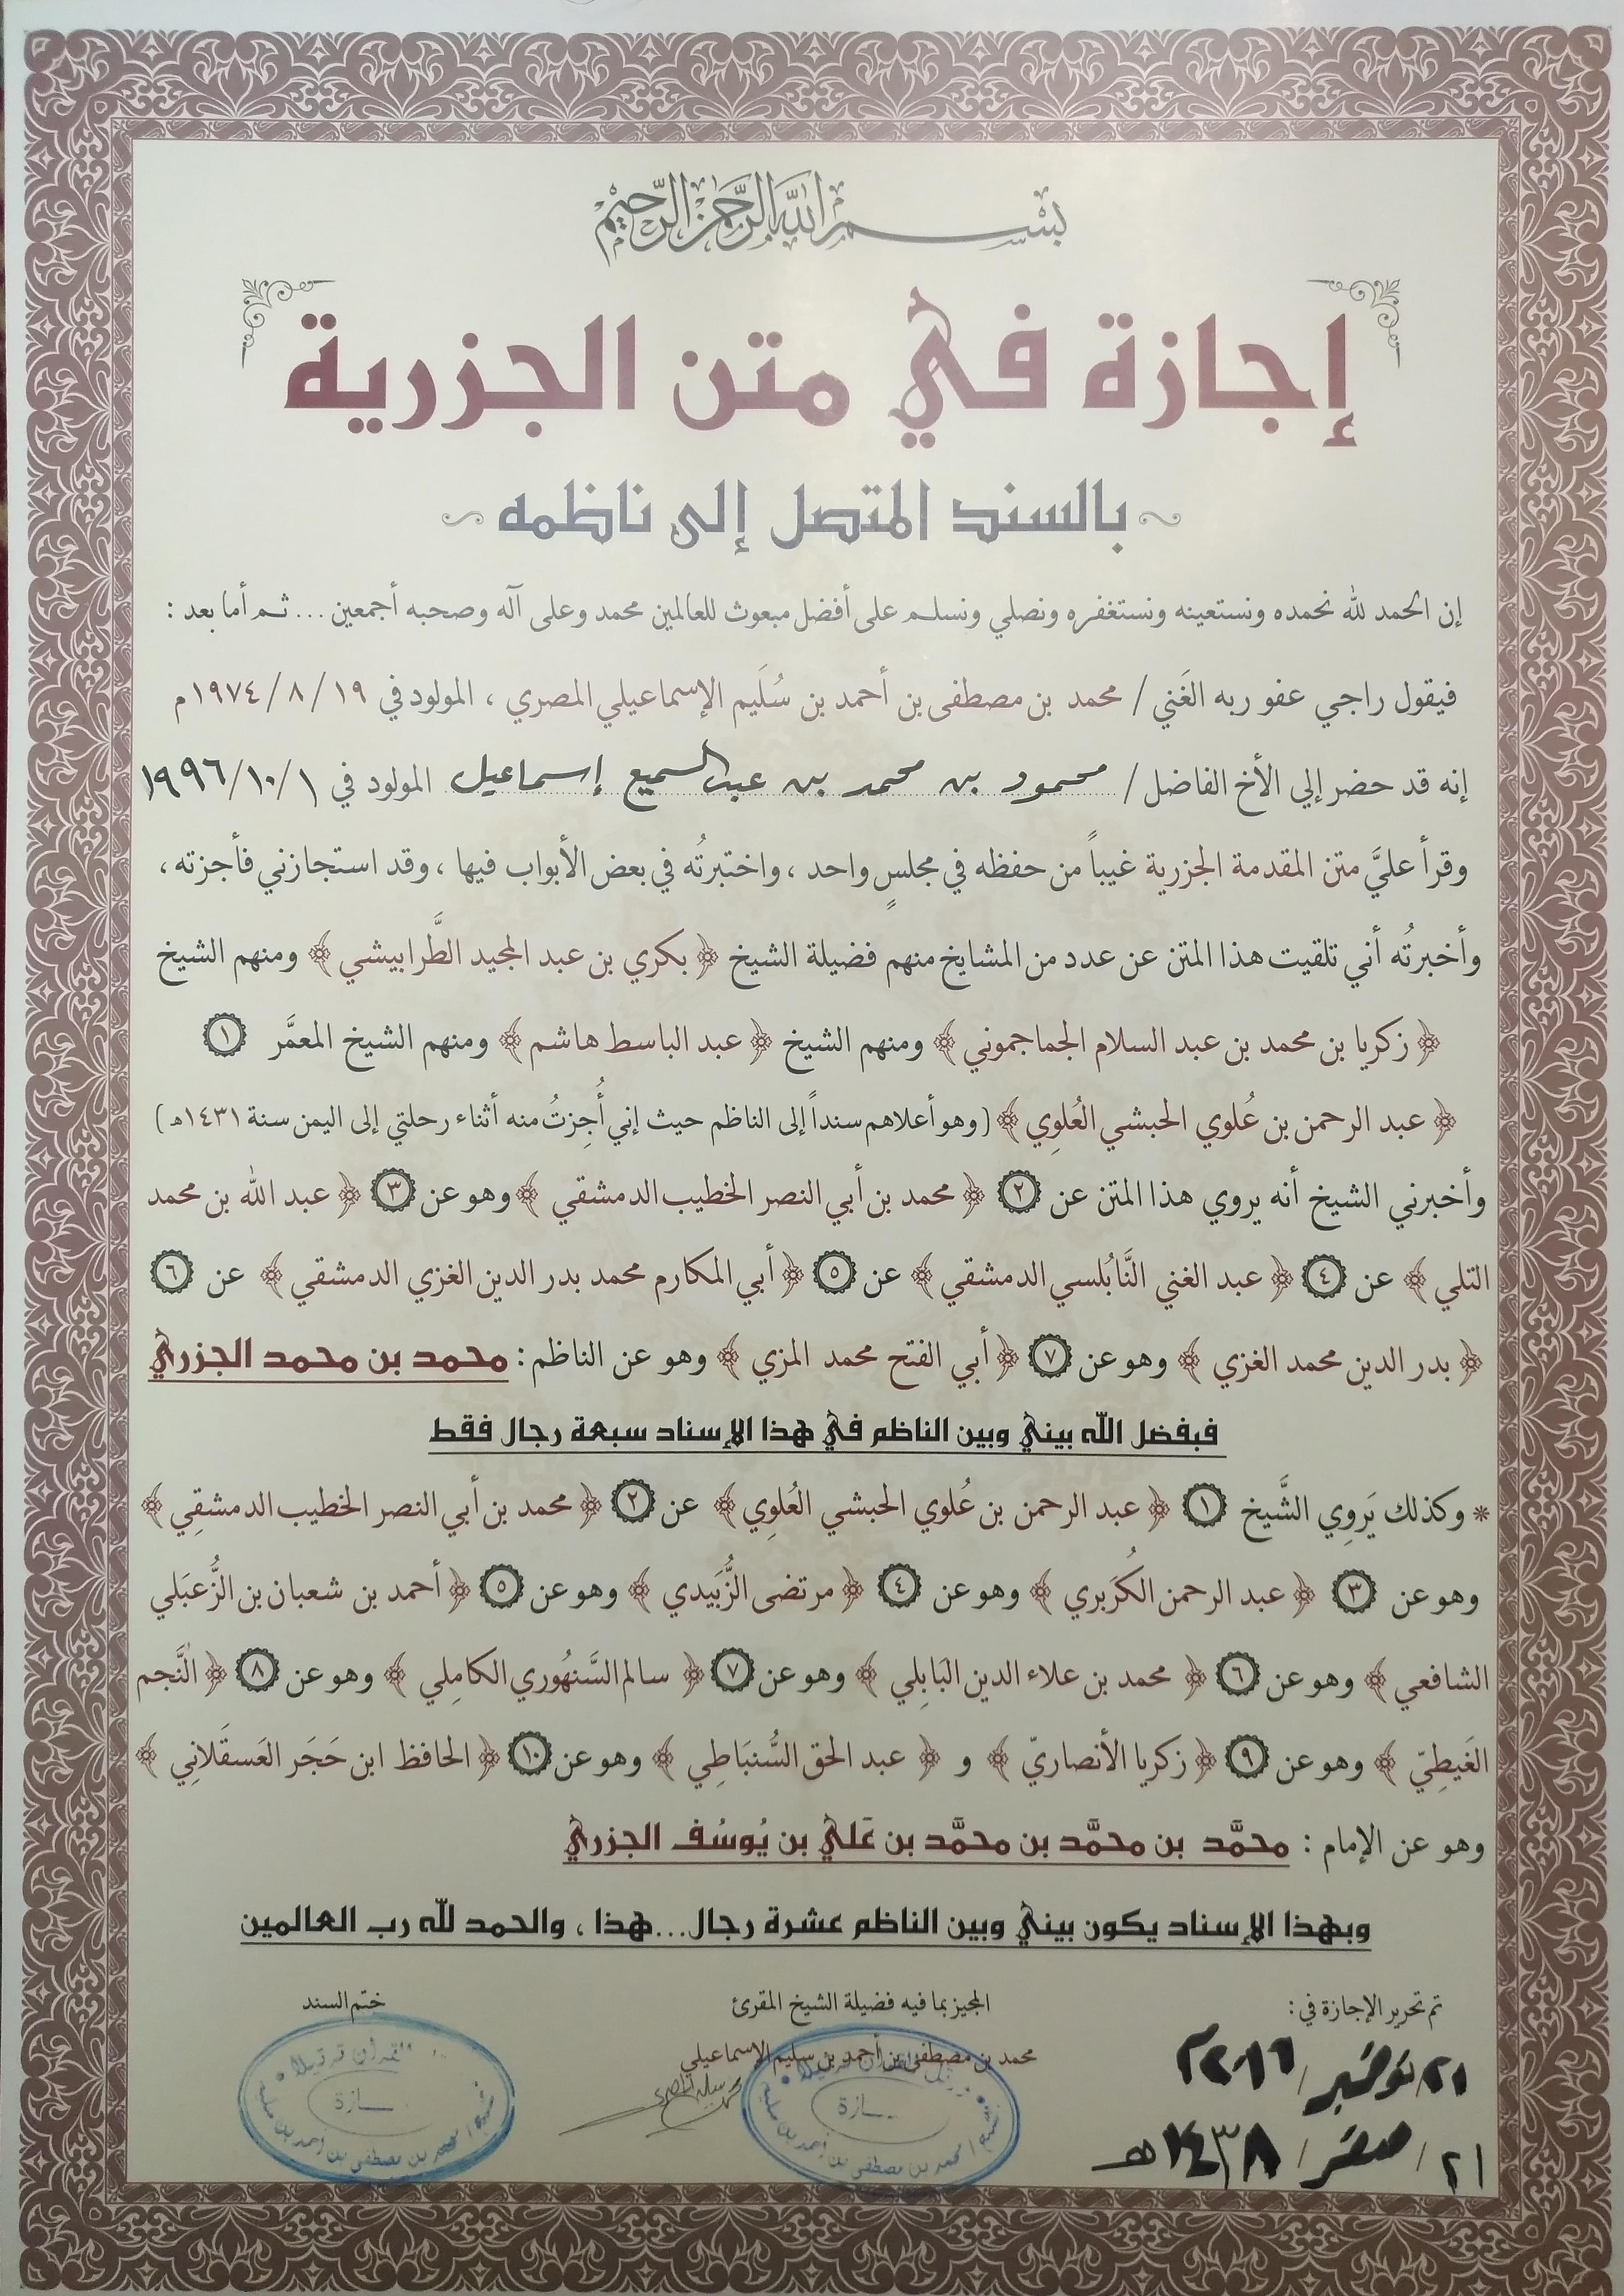 بسم الله الرحمن الرحيم
إجازة في متن الجزرية
بالسند المتصل إلى ناظمه
إن الحمد لله نحمده ونستعينه ونستغفره ونصلي ونسلم على أفضل مبعوث للعالمين محمد وعلى آله وصحبه أجمعين ... ثم أما بعد :
فيقول راجي عفو ربه الغَني / محمد بن مصطفى بن أحمد بن سُلَيم الإسماعيلي المصري ، المولود في ١٩ / ٨ / ١٩٧٤م
إنه قد حضر إلي الأخ الفاضل / محمود بن محمد بن عبد السميع إسماعيل المولود في ١ /١٠/ ١٩٩٦
وقرأ عليَّ متن المقدمة الجزرية غيباً من حفظه في مجلسٍ واحد ، واختبرتُه في بعض الأبواب فيها ، وقد استجازني فأجزته ،
وأخبرتُه أني تلقيت هذا المتن عن عدد من المشايخ منهم فضيلة الشيخ ﴿ بكري بن عبد المجيد الطَّرابيشي ﴾ ومنهم الشيخ
﴿ زكريا بن محمد بن عبد السلام الجماجموني ﴾ ومنهم الشيخ ﴿ عبد الباسط هاشم ﴾ ومنهم الشيخ المعمَّر ١
﴿ عبد الرحمن بن عُلوي الحبشي العُلوِي ﴾ ( وهو أعلاهم سنداً إلى الناظم حيث إني أُجِزتُ منه أثناء رحلتي إلى اليمن سنة ١٤٣١ه )
وأخبرني الشيخ أنه يروي هذا المتن عن ٢ ﴿ محمد بن أبي النصر الخطيب الدمشقي ﴾ وهو عن ٣ ﴿ عبد الله بن محمد
التلي ﴾ عن ٤ ﴿ عبد الغني النَّابُلسي الدمشقي ﴾ عن ٥ ﴿ أبي المكارم محمد بدر الدين الغزي الدمشقي ﴾ عن ٦
﴿ بدر الدين محمد الغزي ﴾ وهو عن ٧ ﴿ أبي الفتح محمد المزي ﴾ وهو عن الناظم : محمد بن محمد الجزري
فبفضل الله بيني وبين الناظم في هذا الإسناد سبعة رجال فقط
* وكذلك يَروِي الشَّيخ ١ ﴿ عبد الرحمن بن عُلوي الحبشي العُلوِي ﴾ عن ٢ ﴿ محمد بن أبي النصر الخطيب الدمشقِي ﴾
وهو عن ٣ ﴿ عبد الرحمن الكُزبري ﴾ وهو عن ٤ ﴿ مرتضى الزَّبيدي ﴾ وهو عن ٥ ﴿ أحمد بن شعبان بن الزُّعبَلي
الشافعي ﴾ وهو عن ٦ ﴿ محمد بن علاء الدين البَابِلي ﴾ وهو عن ٧ ﴿ سالم السَّنهُوري الكامِلي ﴾ وهو عن ٨ ﴿ النَّجم
الغَيطِيّ ﴾ وهو عن ٩ ﴿ زكريا الأنصاريّ ﴾ و ﴿ عبد الحق السُّنبَاطِي ﴾ وهو عن ١٠ ﴿ الحافظ ابن حَجَر العَسقَلانِي ﴾
وهو عن الإمام : محمَّد بن محمَّد بن محمَّد بن عَلي بن يُوسُف الجزري
وبهذا الإسناد يكون بيني وبين الناظم عشرة رجال...هذا ، والحمد لله رب العالمين
تم تحرير الإجازة في :
٢١/ نوفمبر / ٢٠١٦
٢١ / صفر / ١٤٣٨هـ
المجيز بما فيه فضيلة الشيخ المقرئ
محمد بن مصطفى بن أحمد بن سليم الإسماعيلي
ختم السند
القرآن ترتيلا
محمد بن مصطفى بن أحمد بن سليم